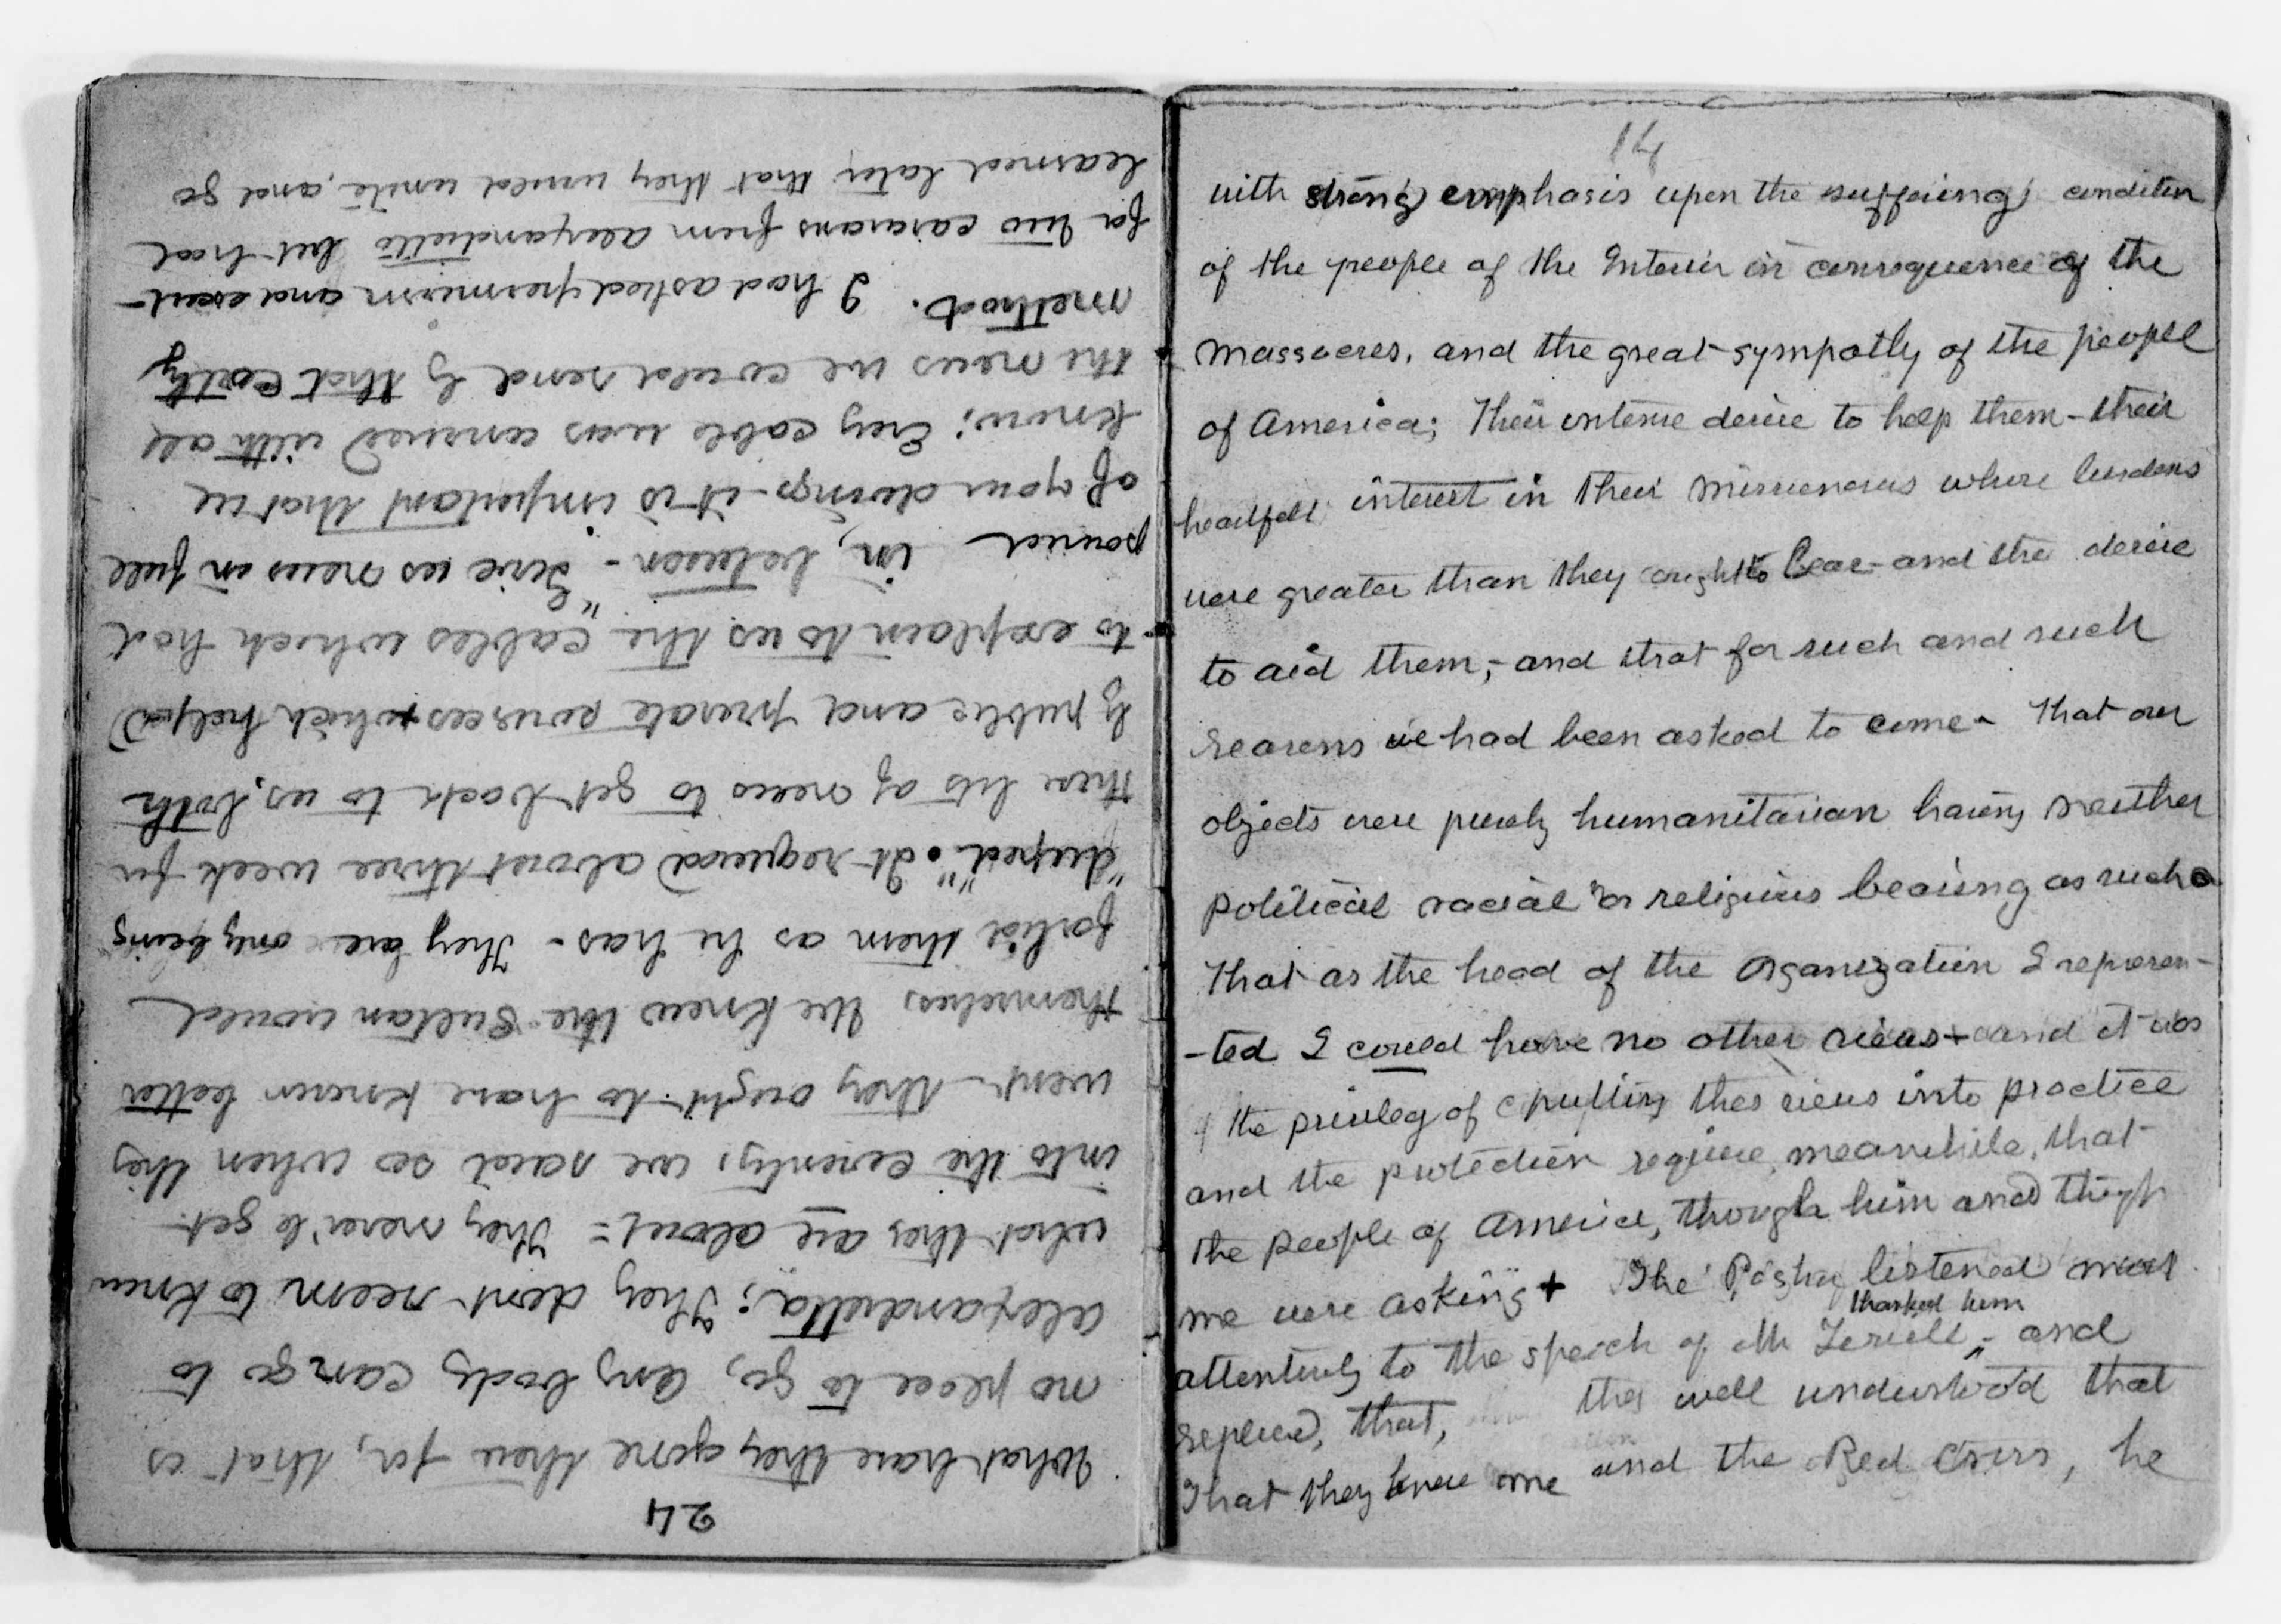 24
What have they gone there for, that is
no place to go, any body can go to
alexandretta"; They dont seem to know
what they are about = They never'le get
into the country, we said so when they
went they ought to have known better
themselves. He knew the Sultan would
forbid them as he has - They are only being
"duped"." It required about three week for
these bits of news to get back to us, both
by public and private sources which helped
to explain to us the cables which had
poured in, between - "Give us news in full
of your doings it is important that we
know; Evey cable was answered with all
the news we could send by that costly
method. I had asked permission and escort
for two caravans from alexandretta but had
learned later that they would unite, and go
14
with strong emphasis upon the suffering condition
of the people of the Interior in consequence of the
massacres, and the great sympathy of the people
of America; Their intense desire to help them - their
heartfelt interest in their missionaries whose burdens
were greater than they ought to bear - and the desire
to aid them, - and that for such and such
reasons we had been asked to come - That our
objects were purely humanitarian having neither
political racial or religious bearing as such
That as the head of the organization I represen-
-ted I could have no other views - and it was
the privileg of putting thes views into practice
and the protection require, meanwhile, that
the people of America, through him and through
me were asking + The Pasha listened most
attentively to the speech of Mr Terrell, thanked him - and
replied, that, they well understood that
That they knew me and the Red Cross, he